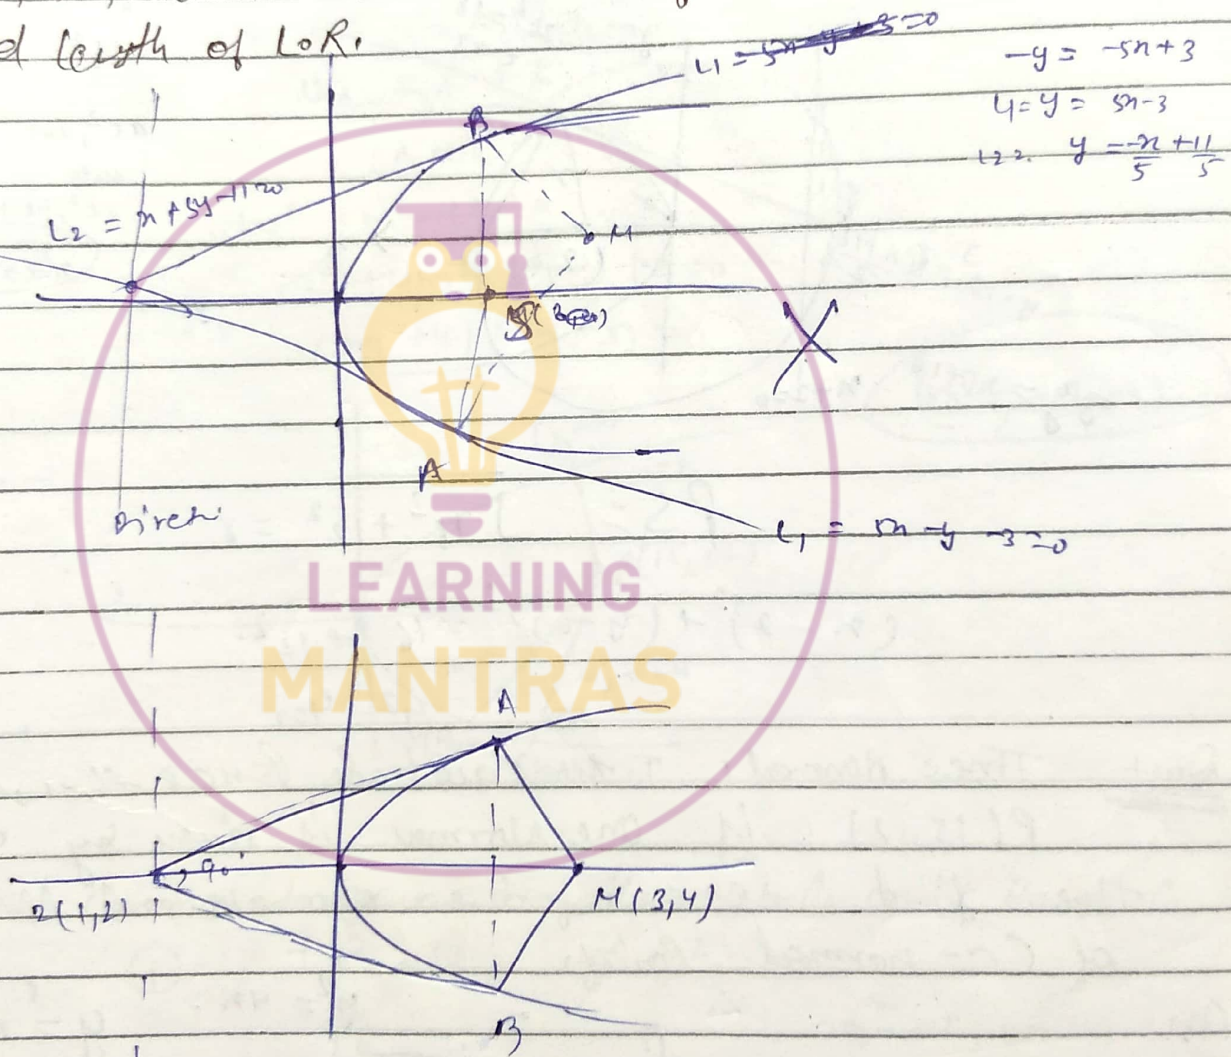 length of L.R.
L1 = 5x - y - 3 = 0
-y = -5x + 3
y = 5x - 3
L2 y = -x/5 + 11/5
B
L2 = x + 5y - 11 = 0
M
A
Direct
L1 = 5x - y - 3 = 0
LEARNING
MANTRAS
A
90°
Z(1,2)
M(3,4)
B